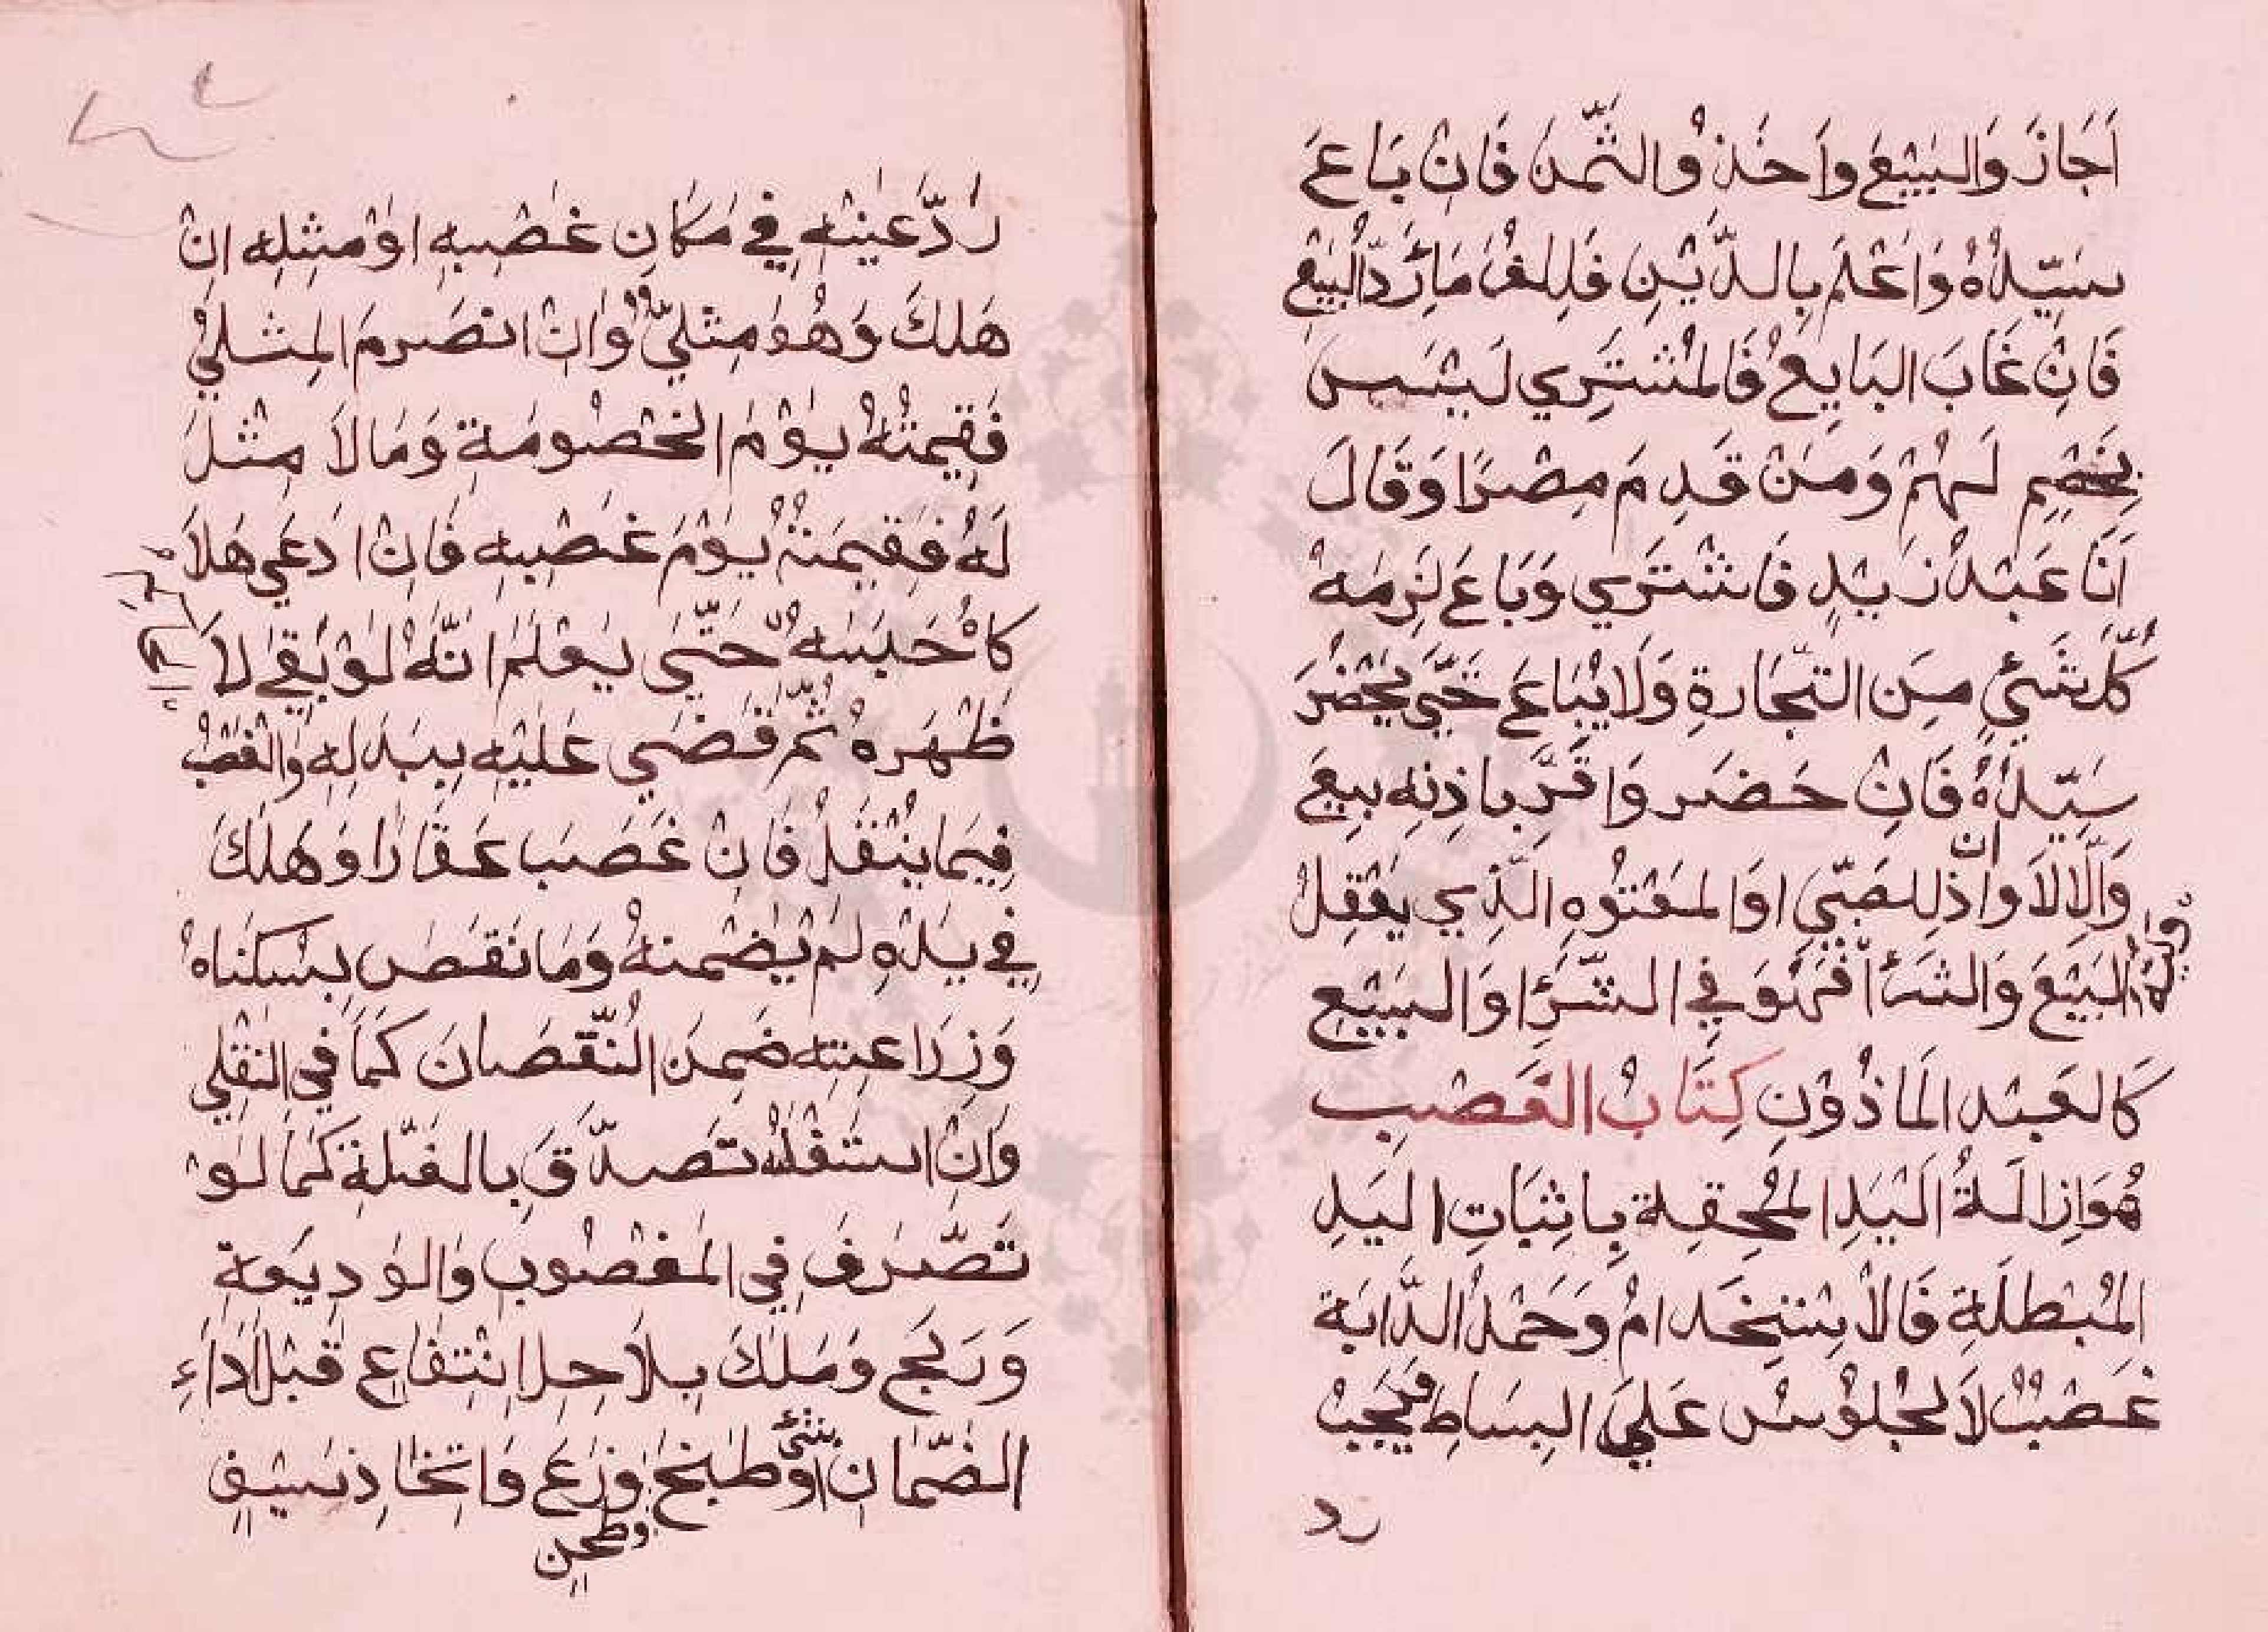 اَجَازَ وَالبَيْعَ واَخَذُ والثَّمَنَ فَاِنْ بَاعَ
سَيِّدُهُ وَاَعْلَمَ بِالدَّيْنِ فَلِلغُرَمَاءِ رَدُّ الْبَيْعِ
فَاِنْ غَابَ البَايِعُ فَالمُشْتَرِي لَيْسَ
بِخَصِمٍ لَهُمْ وَمَنْ قَدِمَ مِصْرًا وَقَالَ
اَنَا عَبْدُ زَيْدٍ فَاشْتَرَي وَبَاعَ لَزِمَهُ
كُلُّ شَيْءٍ مِنَ التِّجَارةِ وَلَا يُبَاعَ حَتَّي يَحْضُرَ
سَيِّدُهُ فَاِنْ حَضَر وَاَقَرَّ باِذنِه بِيعَ
وَاِلَّا لَا وَاِنْ اَذِ لِلصَّبِّيِ اوَالمَعْتُوهِ الَّذِي يَعْقِلُ
البَيْعَ وَالشرَٲ وَلِيُّهُ فَهُوَ فِي الشِّرَٲ وَالبَيْعِ
كَالعَبْدِ المَاذُوْنِ كِتَابُ الغَصْبِ
هُوَ اِزَالَةُ الْيَدِ المُحِقِةِ بِاِثبَاتِ اليَدِ
المُبْطِلَةِ فَالاسْتِخَدامُ وَحَمْلُ الدَّابَةِ
غَصْبٌ لاَ لجُلوْسُ عَلَيَ البِسَاطِ فيَجِبُ
رد
رَدُّ عَيْنِهِ فِي مَكَانِ غَصْبِهِ اوْ مِثلِهِ اِنْ
هَلَكَ وَهُوَ مِثليٌّ وَاِنْ انصَرمَ المِثليُّ
فَقِيمَتُهُ يوْمَ الخصُومَةِ وَمَا لاَ مِثْلَ
لَهُ فَقِيمَتُهُ يَوْمَ غَصْبِهِ فَاِنْ ادَعَي هَلاَ
كَهُ حَبَسَهُ حَتَّي يَعْلَمَ انَّهُ لوْ بَقِيَ لاَ
ظْهَرهُ ثُمَّ قَضَي عَلَيْهِ بِبَدَلِهِ وَالغصْبُ
فِيمَا يُنْقَلُ فَاِنْ غَصَبَ عَقَارًا وَهَلَكَ
فِي يَدِهِ لمْ يَضْمنهُ وَمَا نَقَصَ بِسُكنَاهُ
وَزِرَاعتِهِ ضَمِنَ النُّقصَانَ كَمَا فِي النقلِي
وَاِنْ استَغَلَّهُ تَصَدَّقَ بِالغَلَّةِ كَمَا لوْ
تَصَّرَفَ فِي المَغصُوبِ وَالوَدِيَعةِ
وَرَبحَ وَمَلَكَ بِلاَ حِل انْتِفَاعِ قَبْلَ اَدَاءِ
الضَّمَانِ بشَيٍّ وَطبْخٍ وَطحْنٍ وَزرْعَ وَاتِّخَاذِ سَيْفٍ